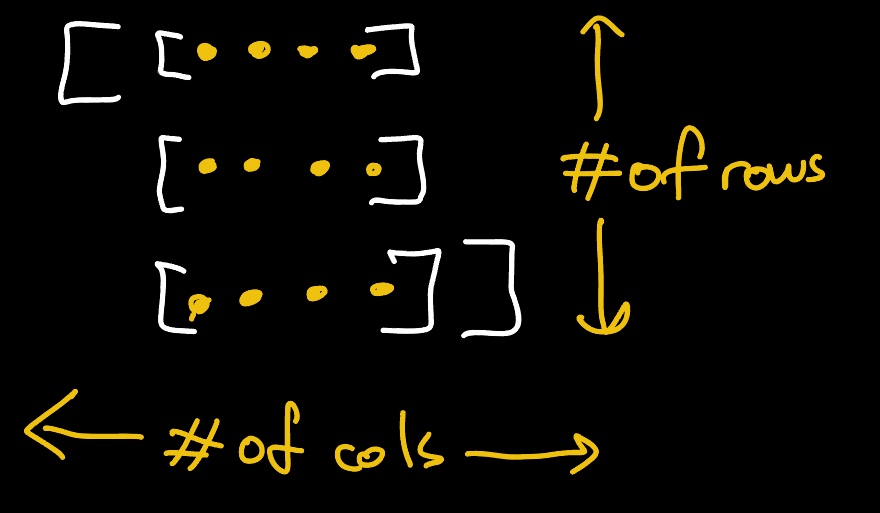 [ [ • • • • ]
[ • • • • ]
[ • • • • ] ]
# of rows
# of cols